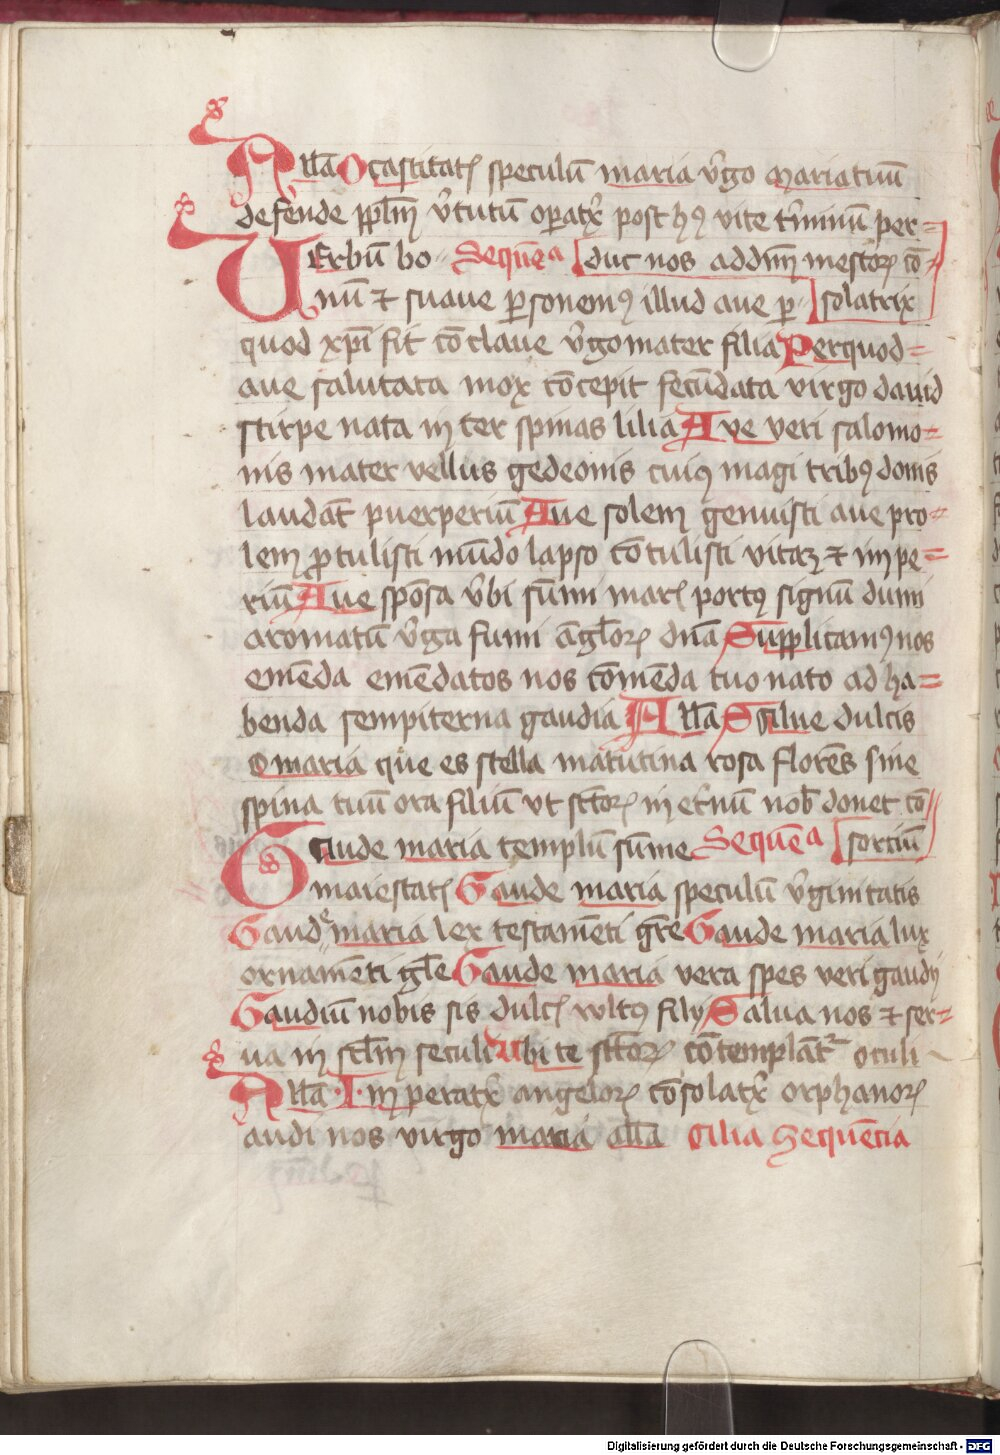 Alla O castitatꝭ speculū maria v̾go maria tuū
defende ppl̄m v̾tutū oꝑatx̾ post hꝰ vite t̾minū per=
Uerbū bo= Sequēa duc nos add̄nm mestoꝝ cō=
nū ⁊ suaue ꝑsonemꝰ illud aue ꝑ= solatrix
quod xp̄i fit cōclaue v̾go mater filia Per quod=
aue salutata mox cōcepit fecūdata virgo dauid
stirpe nata in ter spinas lilia Aue veri salomo=
nis mater vellus gedeonis cuiꝰ magi tribꝰ donis
laudāt puerperiū Aue solem genuisti aue pro=
lem ꝓtulisti mūdo lapso cōtulisti vitaꝫ ⁊ impe=
riū Aue spōsa v̾bi sūmi marꝭ portꝰ signū dumi
aromatū v̾ga fumi āgl̄oꝝ dn̄a Supplicamꝰ nos
emēda emēdatos nos cōmēda tuo nato ad ha=
benda sempiterna gaudia Alla Salue dulcis
O maria que es stella matutina rosa florēs sine
spina tuū ora filiū vt sc̄toꝝ in et̾nū nob̄ donet cō=
Gaude maria templū sūme Sequēa sortiū
maiestatꝭ Gaude maria speculū v̾ginitatis
Gaude maria lex testamēti gr̄e Gaude maria lux
ornamēti gl̄e Gaude maria vera spes veri gaudij
Gaudiū nobis sis dulcꝭ vultꝰ filij Salua nos ⁊ ser=
ua in sc̄l̄m seculi Ubi te sc̄toꝝ cōtemplāt᷑ oculi
Alla · Imperatx̾ angeloꝝ cōsolatx̾ orphanoꝝ
audi nos virgo maria alla Cilia Sequēcia
Digitalisierung gefördert durch die Deutsche Forschungsgemeinschaft - DFG